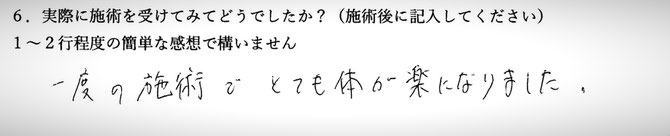 6．実際に施術を受けてみてどうでしたか？（施術後に記入してください）
1～2行程度の簡単な感想で構いません
一度の施術でとても体が楽になりました。